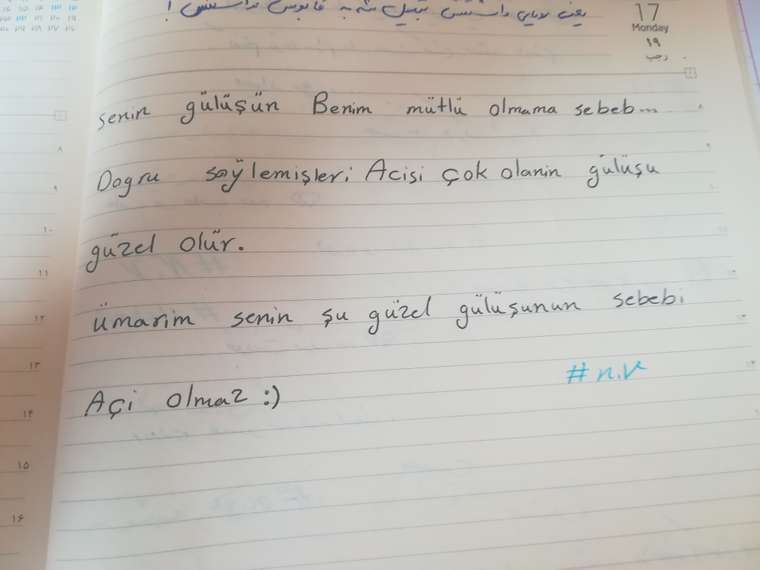 17
Monday
۱۹
رجب
senin gülüşün Benim mütlü olmama sebeb...
Dogru söylemişler; Acisi çok olanin gülüşu
güzel olür.
ümarim senin şu güzel gülüşunun sebebi
Açi olmaz :)
#n.v
۸
۹
۱۰
۱۱
۱۲
۱۳
۱۴
۱۵
۱۶